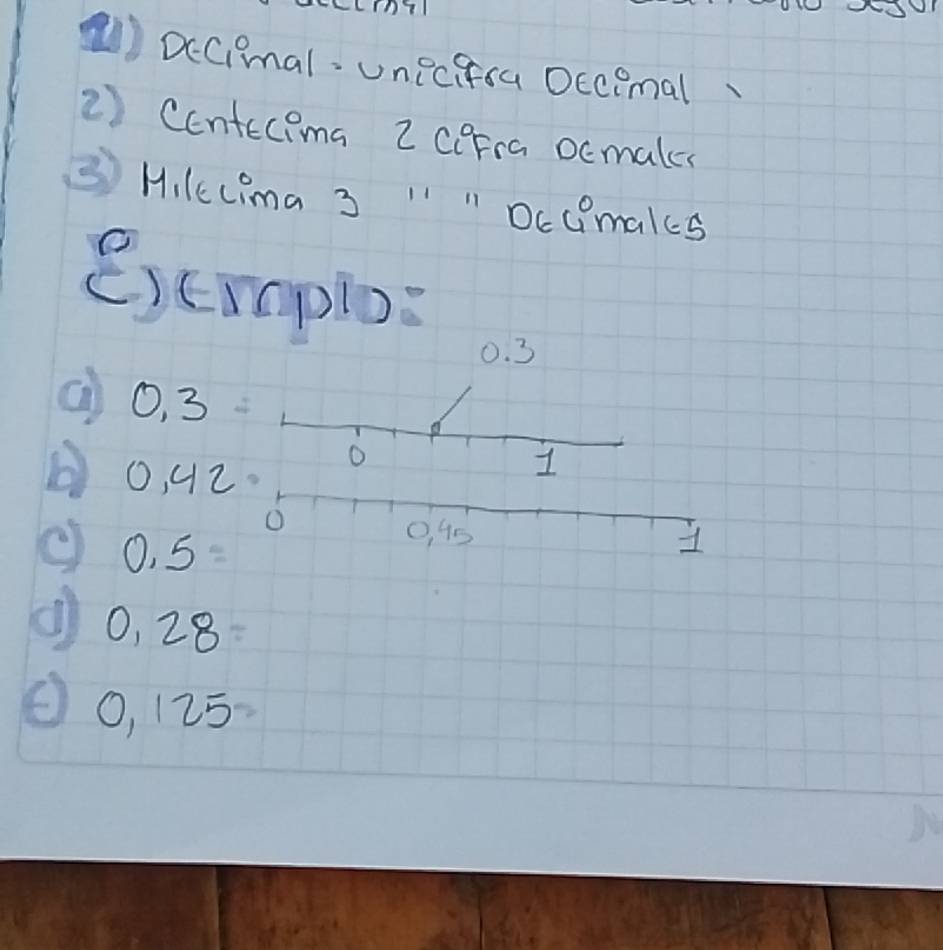 1) Decimal - unicifra Decimal
2) Centecima 2 cifra Demales
3) Milecima 3 " " Decimales
Ejemplo:
0.3
a) 0,3 =
0 1
b) 0,42 =
0 0,45 1
c) 0.5 =
d) 0,28 =
e) 0,125 =